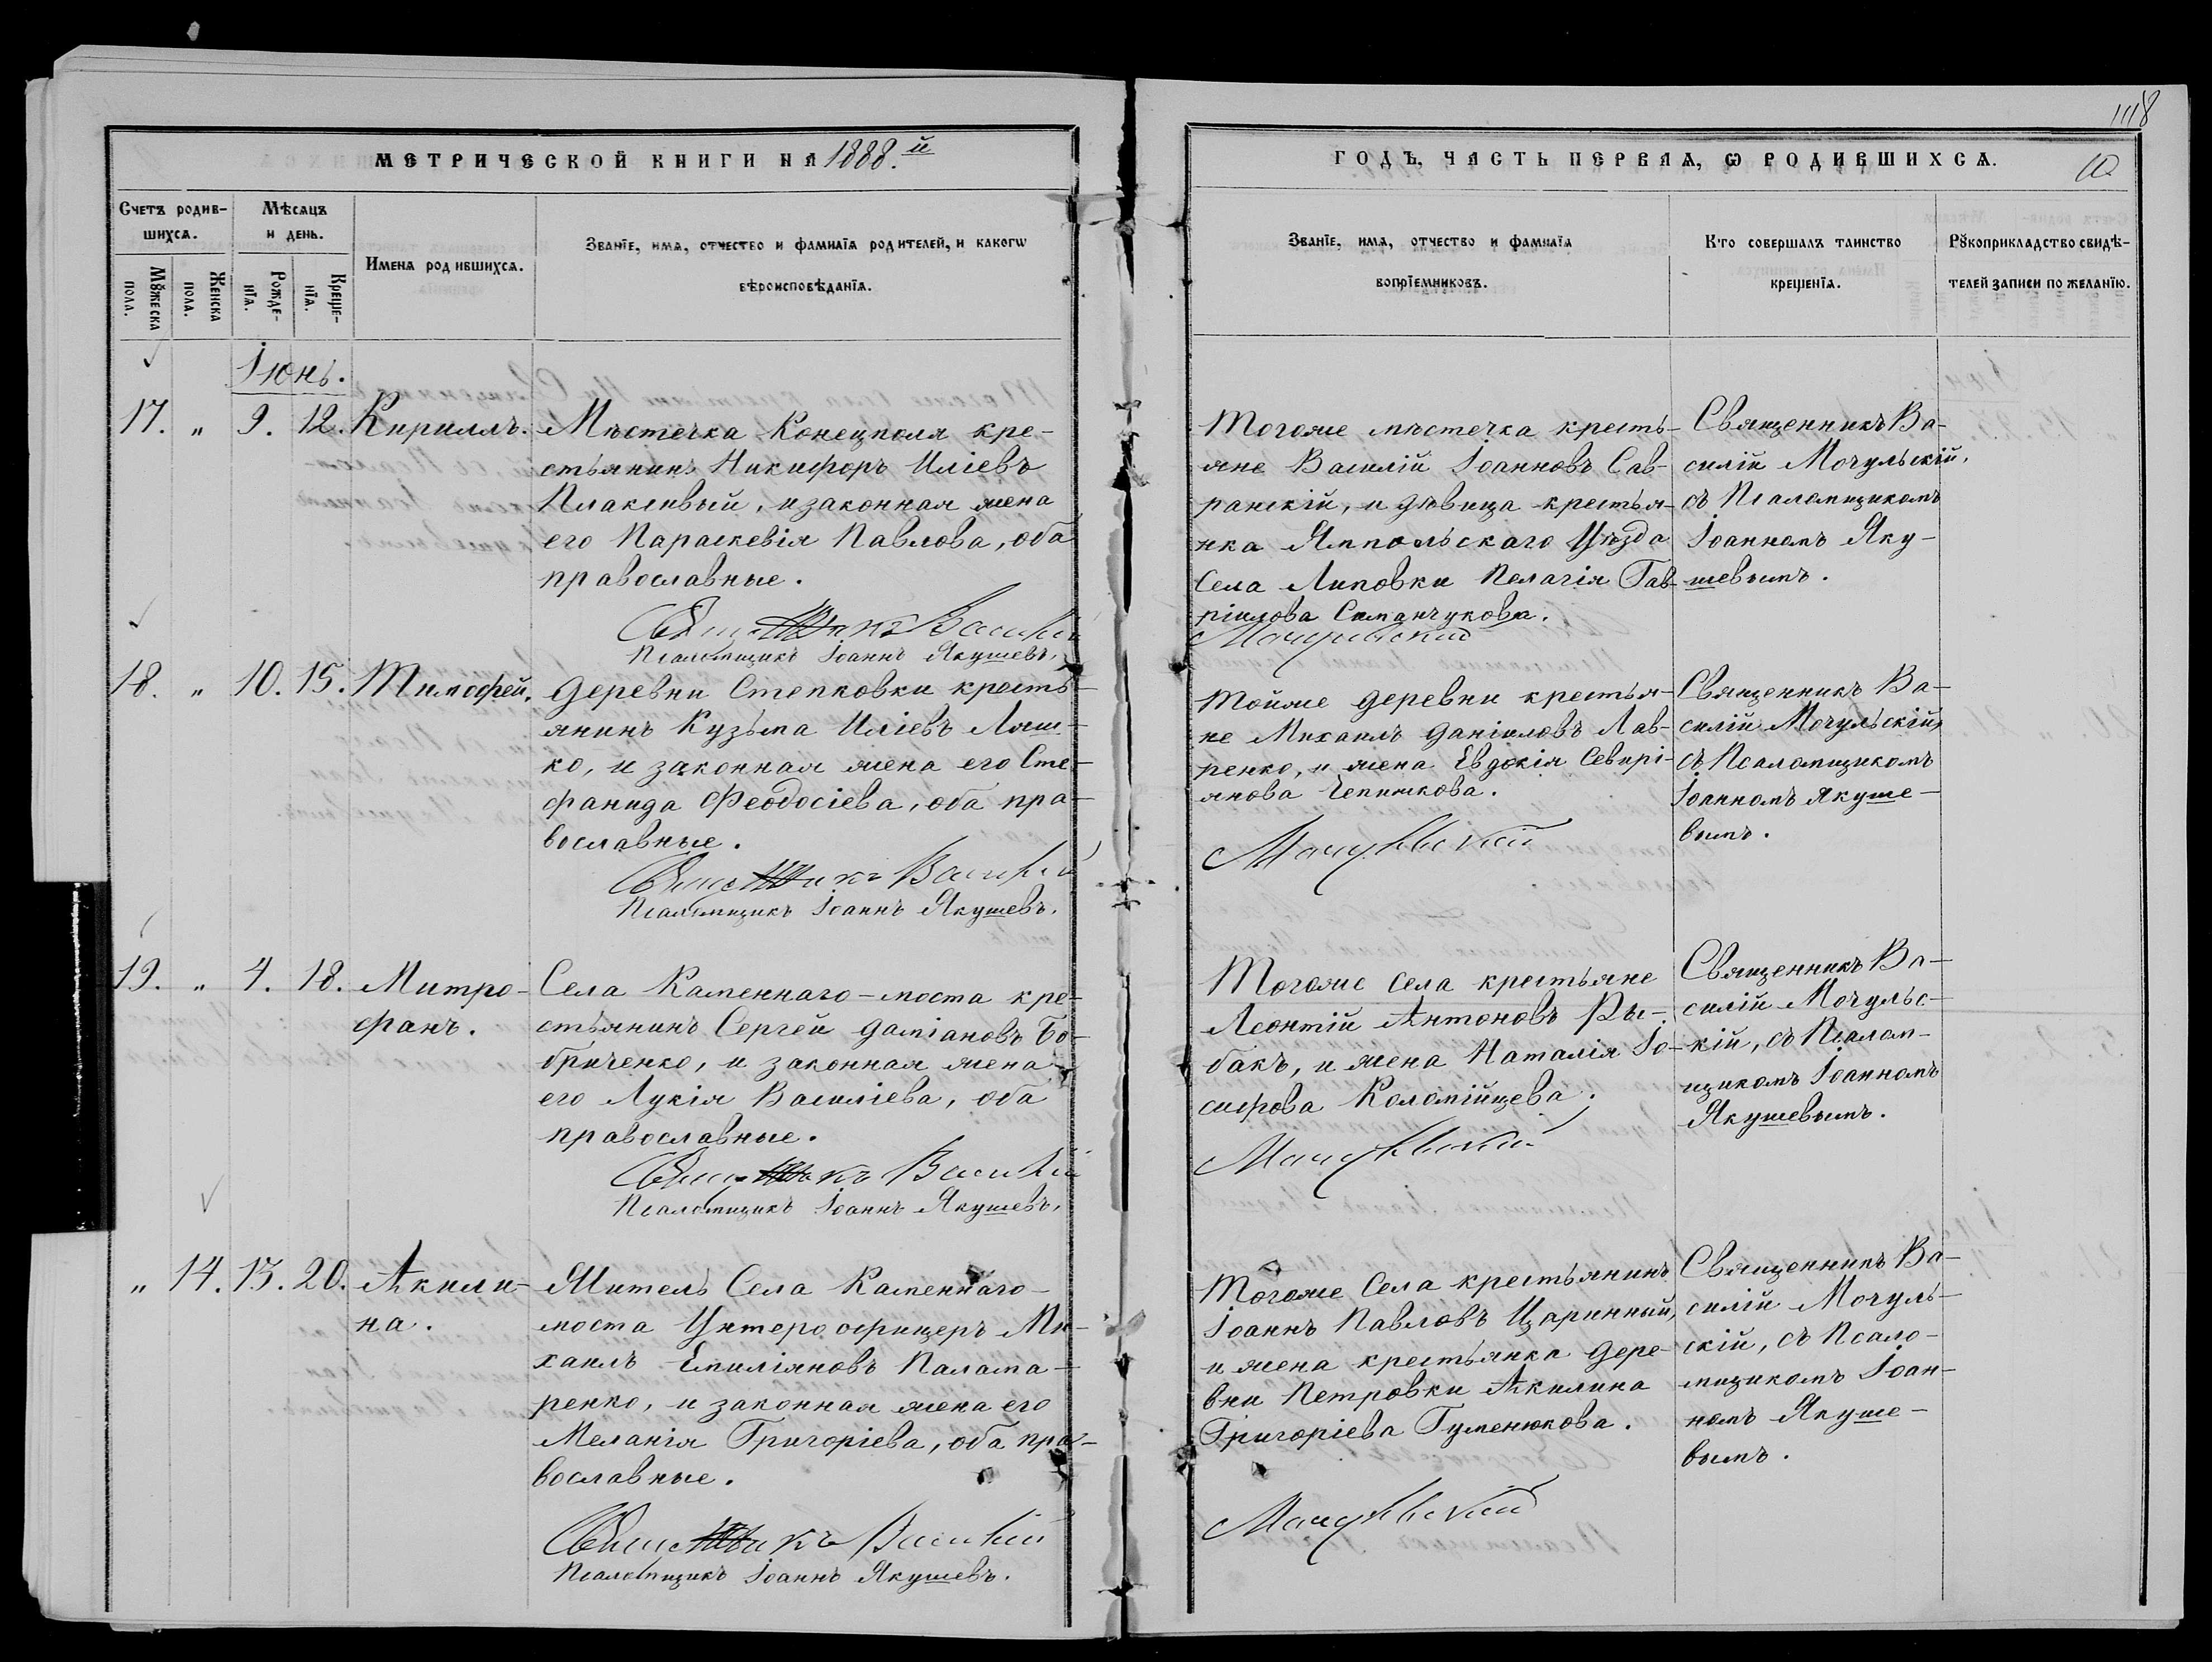 1118
МЕТРИЧЕСКОЙ КНИГИ НА 1888.й
ГОДЪ, ЧАСТЬ ПЕРВАЯ, Ѡ РОДИВШИХСѦ.
10
Счетъ родив-
шихсѧ.
Мѣсѧцъ
и день.
Мꙋжеска
пола.
Женска
пола.
Рожде-
нїѧ.
Креще-
нїѧ.
Имена родившихсѧ.
Званїе, имѧ, отчество и фамилїѧ родителей, и какогѡ
вѣроисповѣданїѧ.
Званїе, имѧ, отчество и фамилїѧ
воспрїемниковъ.
Кто совершалъ таинство
крещенїѧ.
Рꙋкоприкладство свидѣ-
телей записи по желанїю.
Іюнь.
17. " 9. 12. Кириллъ.
Мѣстечка Конецполя кре-
стьянинъ Никифоръ Иліевъ
Плаксивый, и законная жена
его Параскевія Павлова, оба
православные.
Священникъ Василій
Псаломщикъ Іоаннъ Якушевъ.
Тогоже мѣстечка кресть-
яне Василій Іоанновъ Сав-
ранскій, и дѣвица крестья-
нка Ямпольскаго Уѣзда
Села Липовки Пелагія Гав-
ріилова Симанчукова.
Мочульский
Священникъ Ва-
силій Мочульскій,
съ Псаломщикомъ
Іоанномъ Яку-
шевымъ.
18. " 10. 15. Тимофей.
Деревни Степковки кресть-
янинъ Кузьма Иліевъ Ляш-
ко, и законная жена его Сте-
фанида Феодосіева, оба пра-
вославные.
Священникъ Василій
Псаломщикъ Іоаннъ Якушевъ.
Тойже деревни крестья-
не Михаилъ Даніиловъ Лав-
ренко, и жена Евдокія Севирі-
янова Чепижкова.
Мочульский
Священникъ Ва-
силій Мочульскій,
съ Псаломщикомъ
Іоанномъ Якуше-
вымъ.
19. " 4. 18. Митро-
фанъ.
Села Каменнаго-моста кре-
стьянинъ Сергей Даміановъ Бо-
бриченко, и законная жена
его Лукія Василіева, оба
православные.
Священникъ Василій
Псаломщикъ Іоаннъ Якушевъ.
Тогоже села крестьяне
Леонтій Антоновъ Ры-
бакъ, и жена Наталія Іо-
сифова Коломійцева.
Мочульский
Священникъ Ва-
силій Мочульс-
кій, съ Псалом-
щикомъ Іоанномъ
Якушевымъ.
" 14. 13. 20. Акили-
на.
Житель Села Каменнаго-
моста Унтеро офицеръ Ми-
хаилъ Емиліяновъ Палама-
ренко, и законная жена его
Меланія Григоріева, оба пра-
вославные.
Священникъ Василій
Псаломщикъ Іоаннъ Якушевъ.
Тогоже Села крестьянинъ
Іоаннъ Павловъ Царинный,
и жена крестьянка дере-
вни Петровки Акилина
Григоріева Гуменюкова.
Мочульский
Священникъ Ва-
силій Мочуль-
скій, съ Псало-
мщикомъ Іоан-
номъ Якуше-
вымъ.